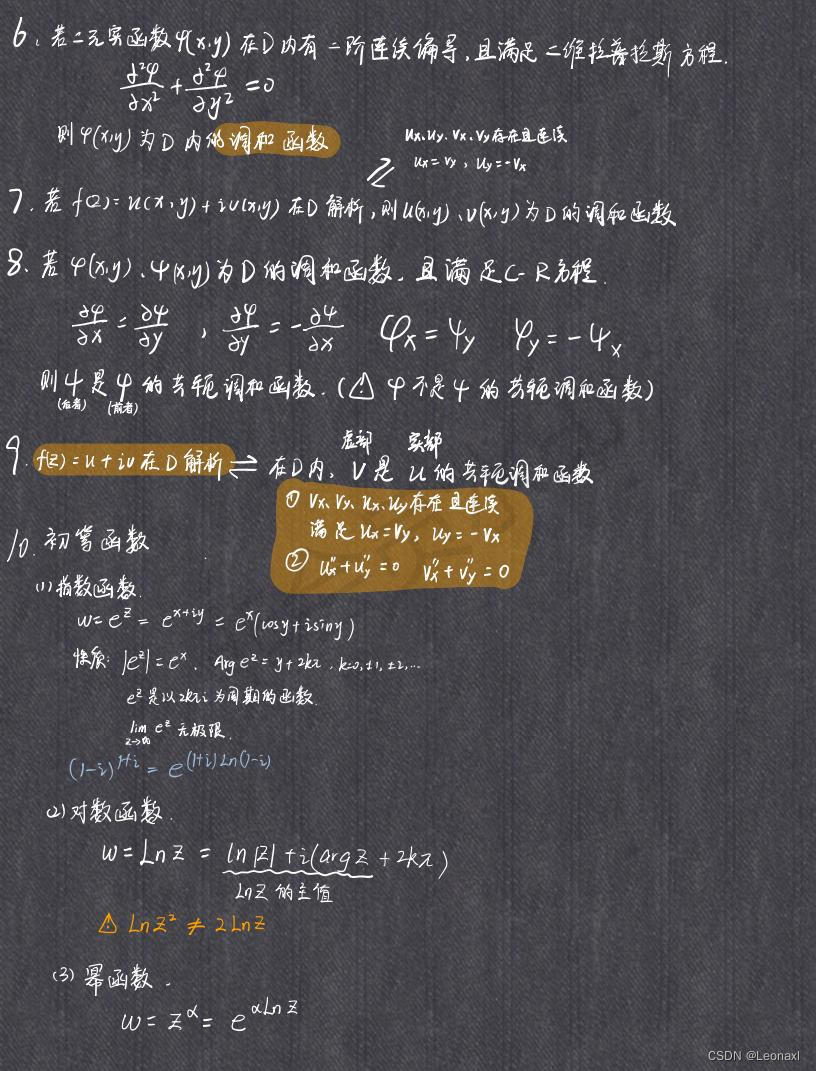 6、若二元实函数φ(x,y)在D内有二阶连续偏导,且满足二维拉普拉斯方程.
∂²φ/∂x² + ∂²φ/∂y² = 0
则φ(x,y)为D内的调和函数
Ux、Uy、Vx、Vy存在且连续
Ux=Vy, Uy=-Vx
7. 若f(z)=u(x,y)+iv(x,y)在D解析,则u(x,y)、v(x,y)为D的调和函数
8、若φ(x,y)、ψ(x,y)为D的调和函数、且满足C-R方程.
∂φ/∂x = ∂ψ/∂y , ∂φ/∂y = -∂ψ/∂x φx=ψy φy=-ψx
则ψ是φ的共轭调和函数.(⚠ φ不是ψ的共轭调和函数)
(后者) (前者)
虚部 实部
9. f(z)=u+iv在D解析 ⇌ 在D内,V是u的共轭调和函数
① Vx、Vy、Ux、Uy存在且连续
满足Ux=Vy, Uy=-Vx
② u″x+u″y=0 v″x+v″y=0
10. 初等函数
(1)指数函数.
w=e^z = e^(x+iy) = e^x(cosy+isiny)
性质: |e^z|=e^x. Arg e^z=y+2kπ. k=0,±1,±2,…
e^z是以2kπi为周期的函数.
lim z→∞ e^z 无极限.
(1-i)^(1+i) = e^((1+i)Ln(1-i))
(2)对数函数.
w=Lnz = ln|z|+i(argz+2kπ)
lnz的主值
⚠ Lnz² ≠ 2Lnz
(3)幂函数.
w=z^α = e^(αLnz)
CSDN @Leonaxl